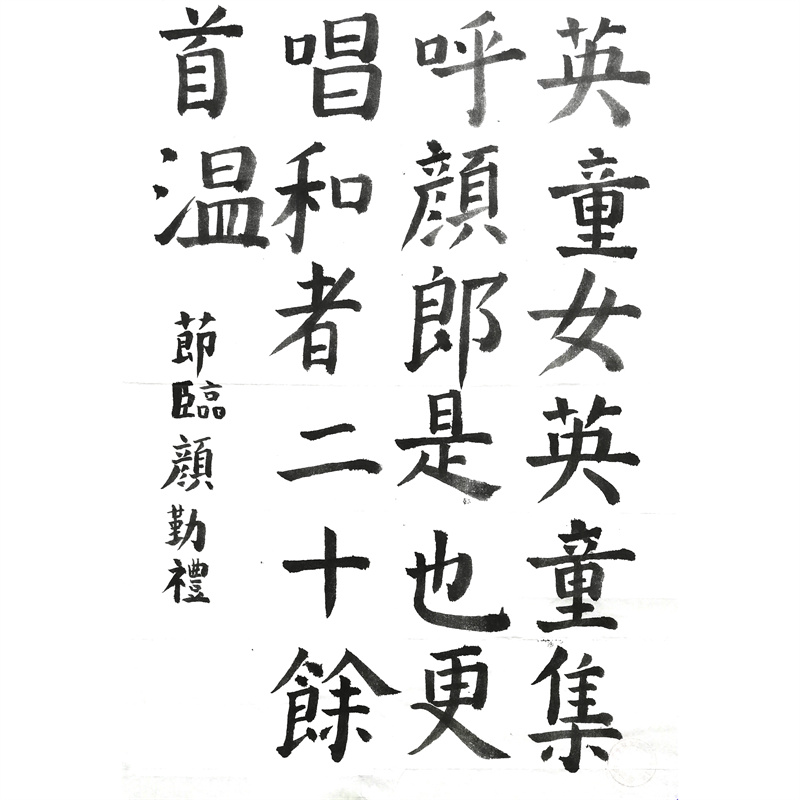 英童女英童集
呼顔郎是也更
唱和者二十餘
首温
節臨顔勤禮